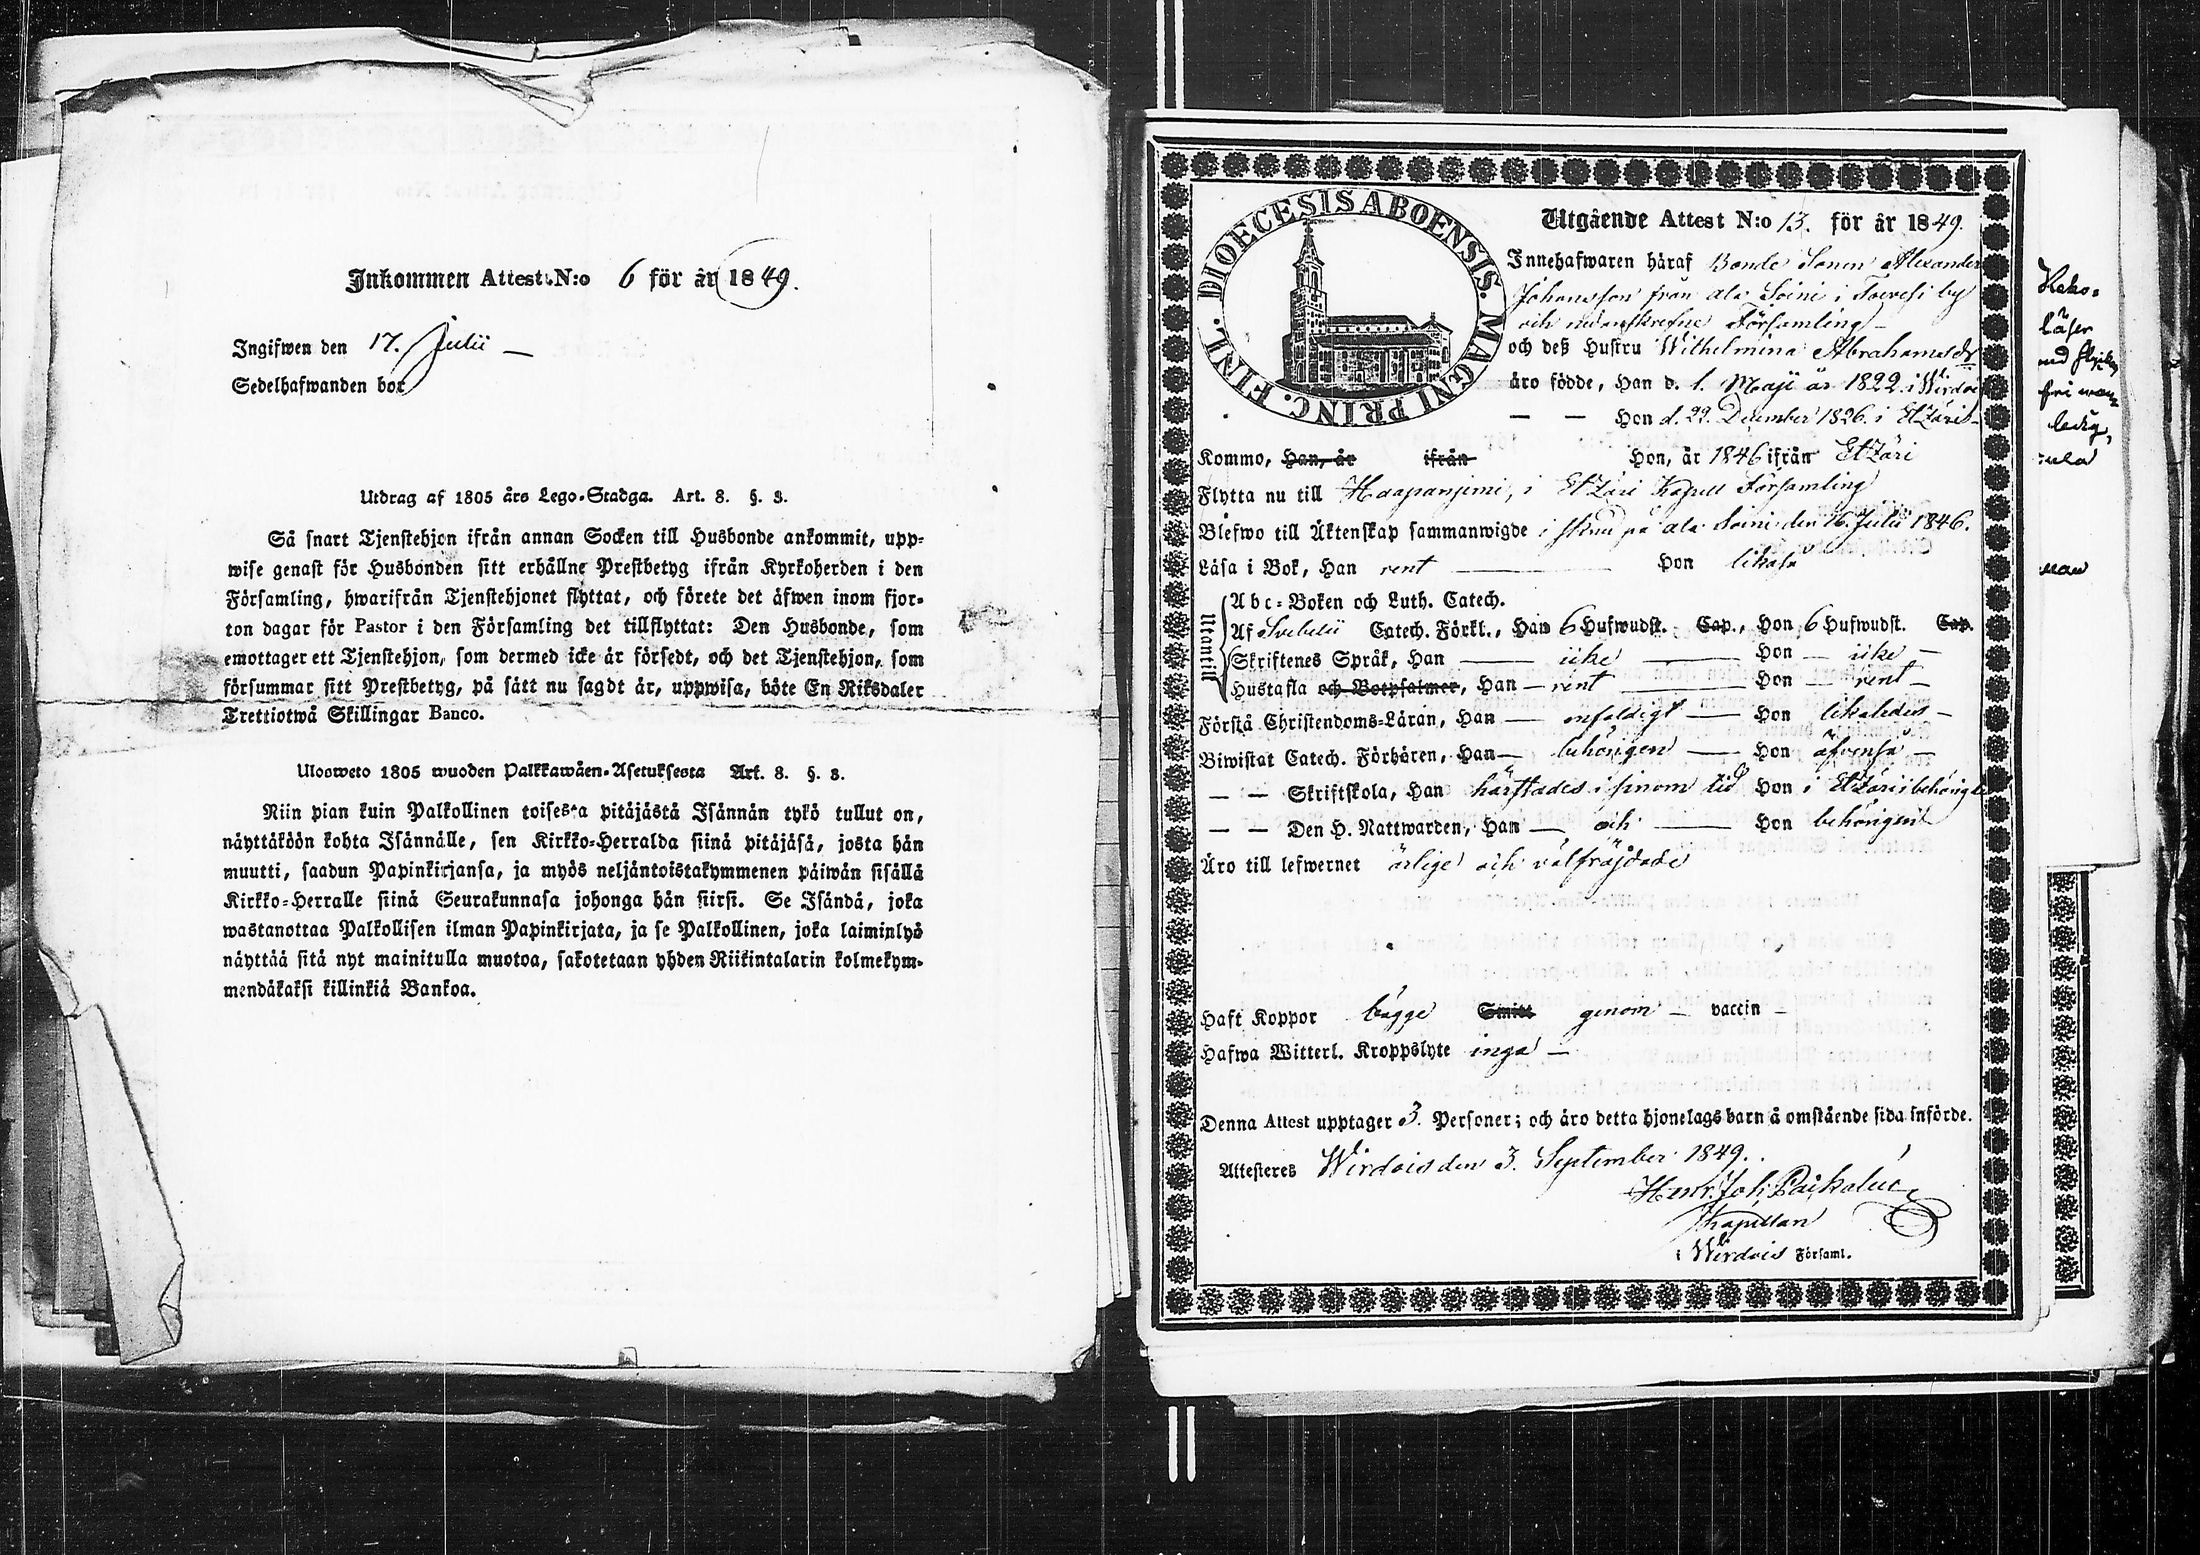 Inkommen Attest N:o 6 för år 1849.
Ingifwen den 17. Julii —
Sedelhafwanden bor
Utdrag af 1805 års Lego-Stadga. Art. 8. §. 3.
Så snart Tjenstehjon ifrån annan Socken till Husbonde ankommit, upp-
wise genast för Husbonden sitt erhållne Prestbetyg ifrån Kyrkoherden i den
Församling, hwarifrån Tjenstehjonet flyttat, och förete det äfwen inom fjor-
ton dagar för Pastor i den Församling det tillflyttat: Den Husbonde, som
emottager ett Tjenstehjon, som dermed icke är försedt, och det Tjenstehjon, som
försummar sitt Prestbetyg, på sätt nu sagdt är, uppwisa, böte En Riksdaler
Trettiotwå Skillingar Banco.
Ulosweto 1805 wuoden Palkkawäen-Asetuksesta Art. 8. §. 3.
Niin pian kuin Palkollinen toisesta pitäjästä Isännän tykö tullut on,
näyttäköön kohta Isännälle, sen Kirkko-Herralda siinä pitäjäsä, josta hän
muutti, saadun Papinkirjansa, ja myös neljäntoistakymmenen päiwän sisällä
Kirkko-Herralle siinä Seurakunnasa johonga hän siirsi. Se Isändä, joka
wastanottaa Palkollisen ilman Papinkirjata, ja se Palkollinen, joka laiminlyö
näyttää sitä nyt mainitulla muotoa, sakotetaan yhden Riikintalarin kolmekym-
mendäkaksi killinkiä Bankoa.
DIOECESIS ABOENSIS. MAGNI PRINC. FINL.
Utgående Attest N:o 13. för år 1849.
Innehafwaren häraf Bonde Sonen Alexander
Johansson från ala Soini i Toivesi by
och nedanskrefne Församling —
och deß Hustru Wilhelmina Abrahamsdr
äro födde, Han d. 1. Maji år 1822 i Wirdois
— — Hon d. 22. December 1826. i Etzäri —
Kommo, Han, år ifrån Hon, år 1846 ifrån Etzäri
Flytta nu till Haapanjemi, i Etzäri Kapell Församling
Blefwo till Äktenskap sammanwigde i på ala Soini den 16. Julii 1846.
Läsa i Bok, Han rent — Hon likaså
Utantill
Abc-Boken och Luth. Catech.
Af Svebelii Catech. Förkl., Han 6 Hufwudst. Cap., Hon 6 Hufwudst. Cap.
Skriftenes Språk, Han — icke — Hon — icke —
Hustafla och Botpsalmer, Han — rent — Hon — rent —
Förstå Christendoms-Läran, Han — enfaldigt — Hon likaledes —
Biwistat Catech. Förhören, Han — behörigen — Hon äfvenså —
— — Skriftskola, Han härstädes i sinom tid Hon i Etzäri behörigen
— — Den H. Nattwarden, Han — och — Hon behörigen
Äro till lefwernet ärlige och välfräjdade
Haft Koppor bägge Smitt genom — vaccin —
Hafwa Witterl. Kroppslyte inga —
Denna Attest upptager 3. Personer; och äro detta hjonelags barn å omstående sida införde.
Attesteres Wirdois den 3. September 1849.
Henr. Joh.
Kapellan
i Wirdois Församl.
läser
ledig,